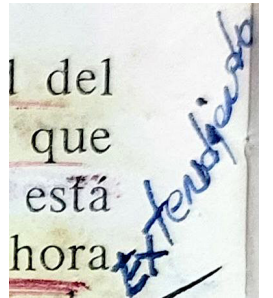 l del
que
está
hora
Extendiendo